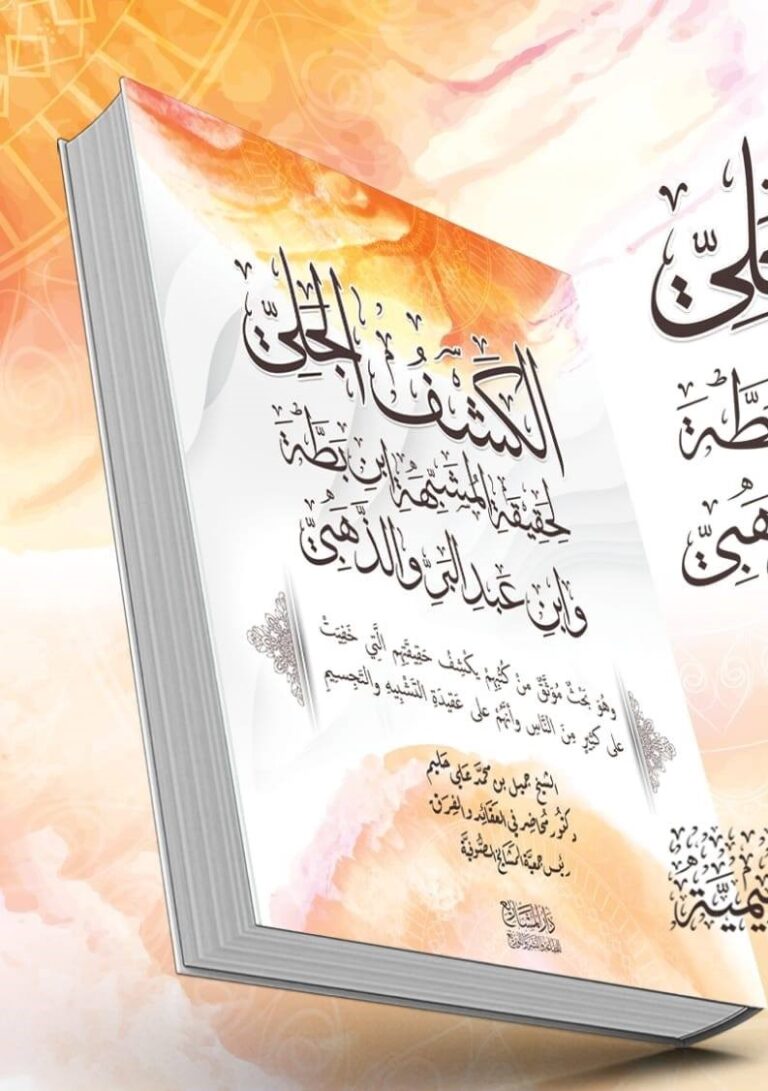 الكَشْفُ الجَلِيّ
لِحَقِيقَةِ المُشَبِّهَةِ ابْنِ بَطَّةَ
وَابْنِ عَبْدِ البَرِّ وَالذَّهَبِيّ
وهُوَ بَحْثٌ مُوَثَّقٌ مِنْ كُتُبِهِمْ يَكْشِفُ حَقِيقَتَهُمِ الَّتِي خَفِيَتْ
على كَثِيرٍ مِنَ النَّاسِ وأَنَّهُمْ على عَقِيدَةِ التَّشْبِيهِ والتَّجْسِيمِ
الشيخ جميل بن محمد علي حليم
دكتور محاضر في العقائد والفرق
رئيس جمعية المشايخ الصوفية
دار المشاريع
للطباعة والنشر والتوزيع